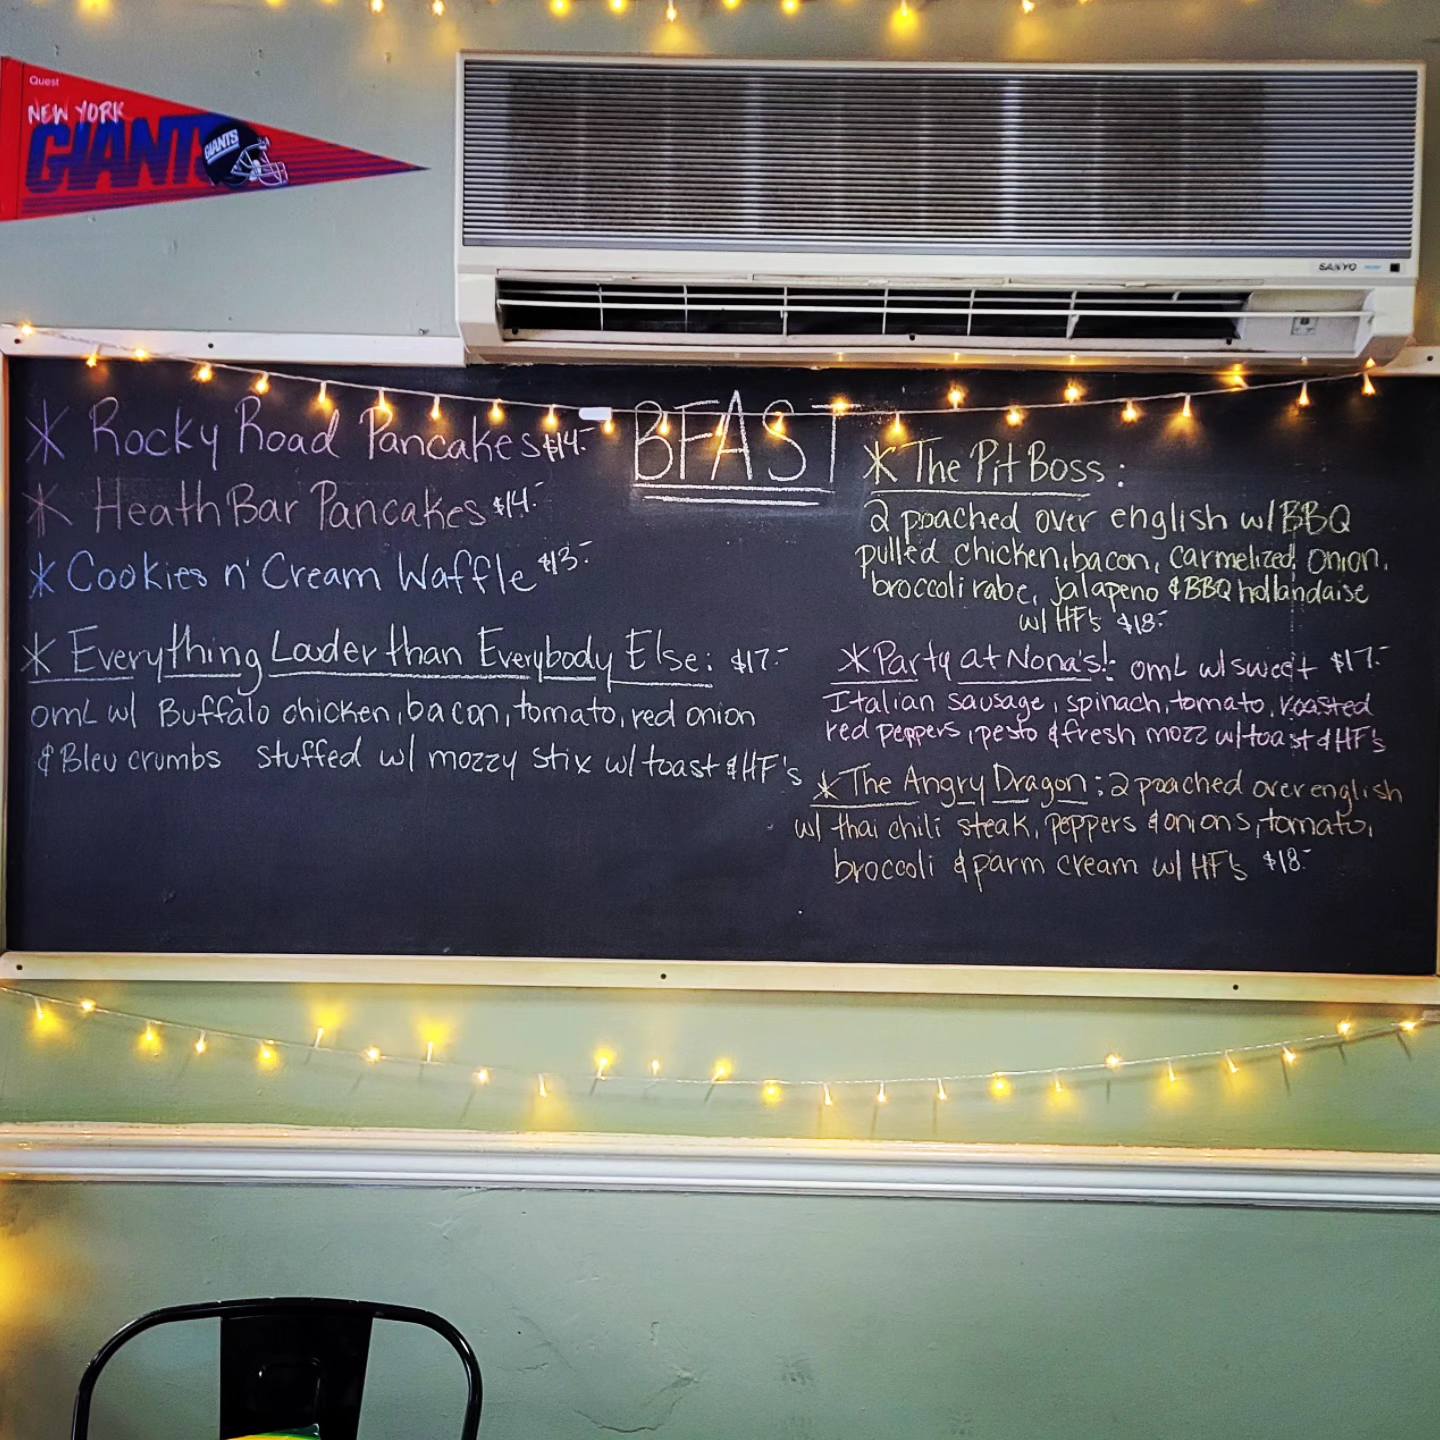 Quest
NEW YORK
GIANTS
GIANTS
SANYO
BFAST
* Rocky Road Pancakes $14.-
* Heath Bar Pancakes $14.-
* Cookies n' Cream Waffle $13.-
* Everything Louder than Everybody Else: $17.-
omL w/ Buffalo chicken, bacon, tomato, red onion
& Bleu crumbs stuffed w/ mozzy stix w/ toast & HF's
* The Pit Boss:
2 poached over english w/ BBQ
pulled chicken, bacon, carmelized onion,
broccoli rabe, jalapeno & BBQ hollandaise
w/ HF's $18.-
* Party at Nona's!: omL w/ sweet $17.-
Italian sausage, spinach, tomato, roasted
red peppers, pesto & fresh mozz w/ toast & HF's
* The Angry Dragon: 2 poached over english
w/ thai chili steak, peppers & onions, tomato,
broccoli & parm cream w/ HF's $18.-